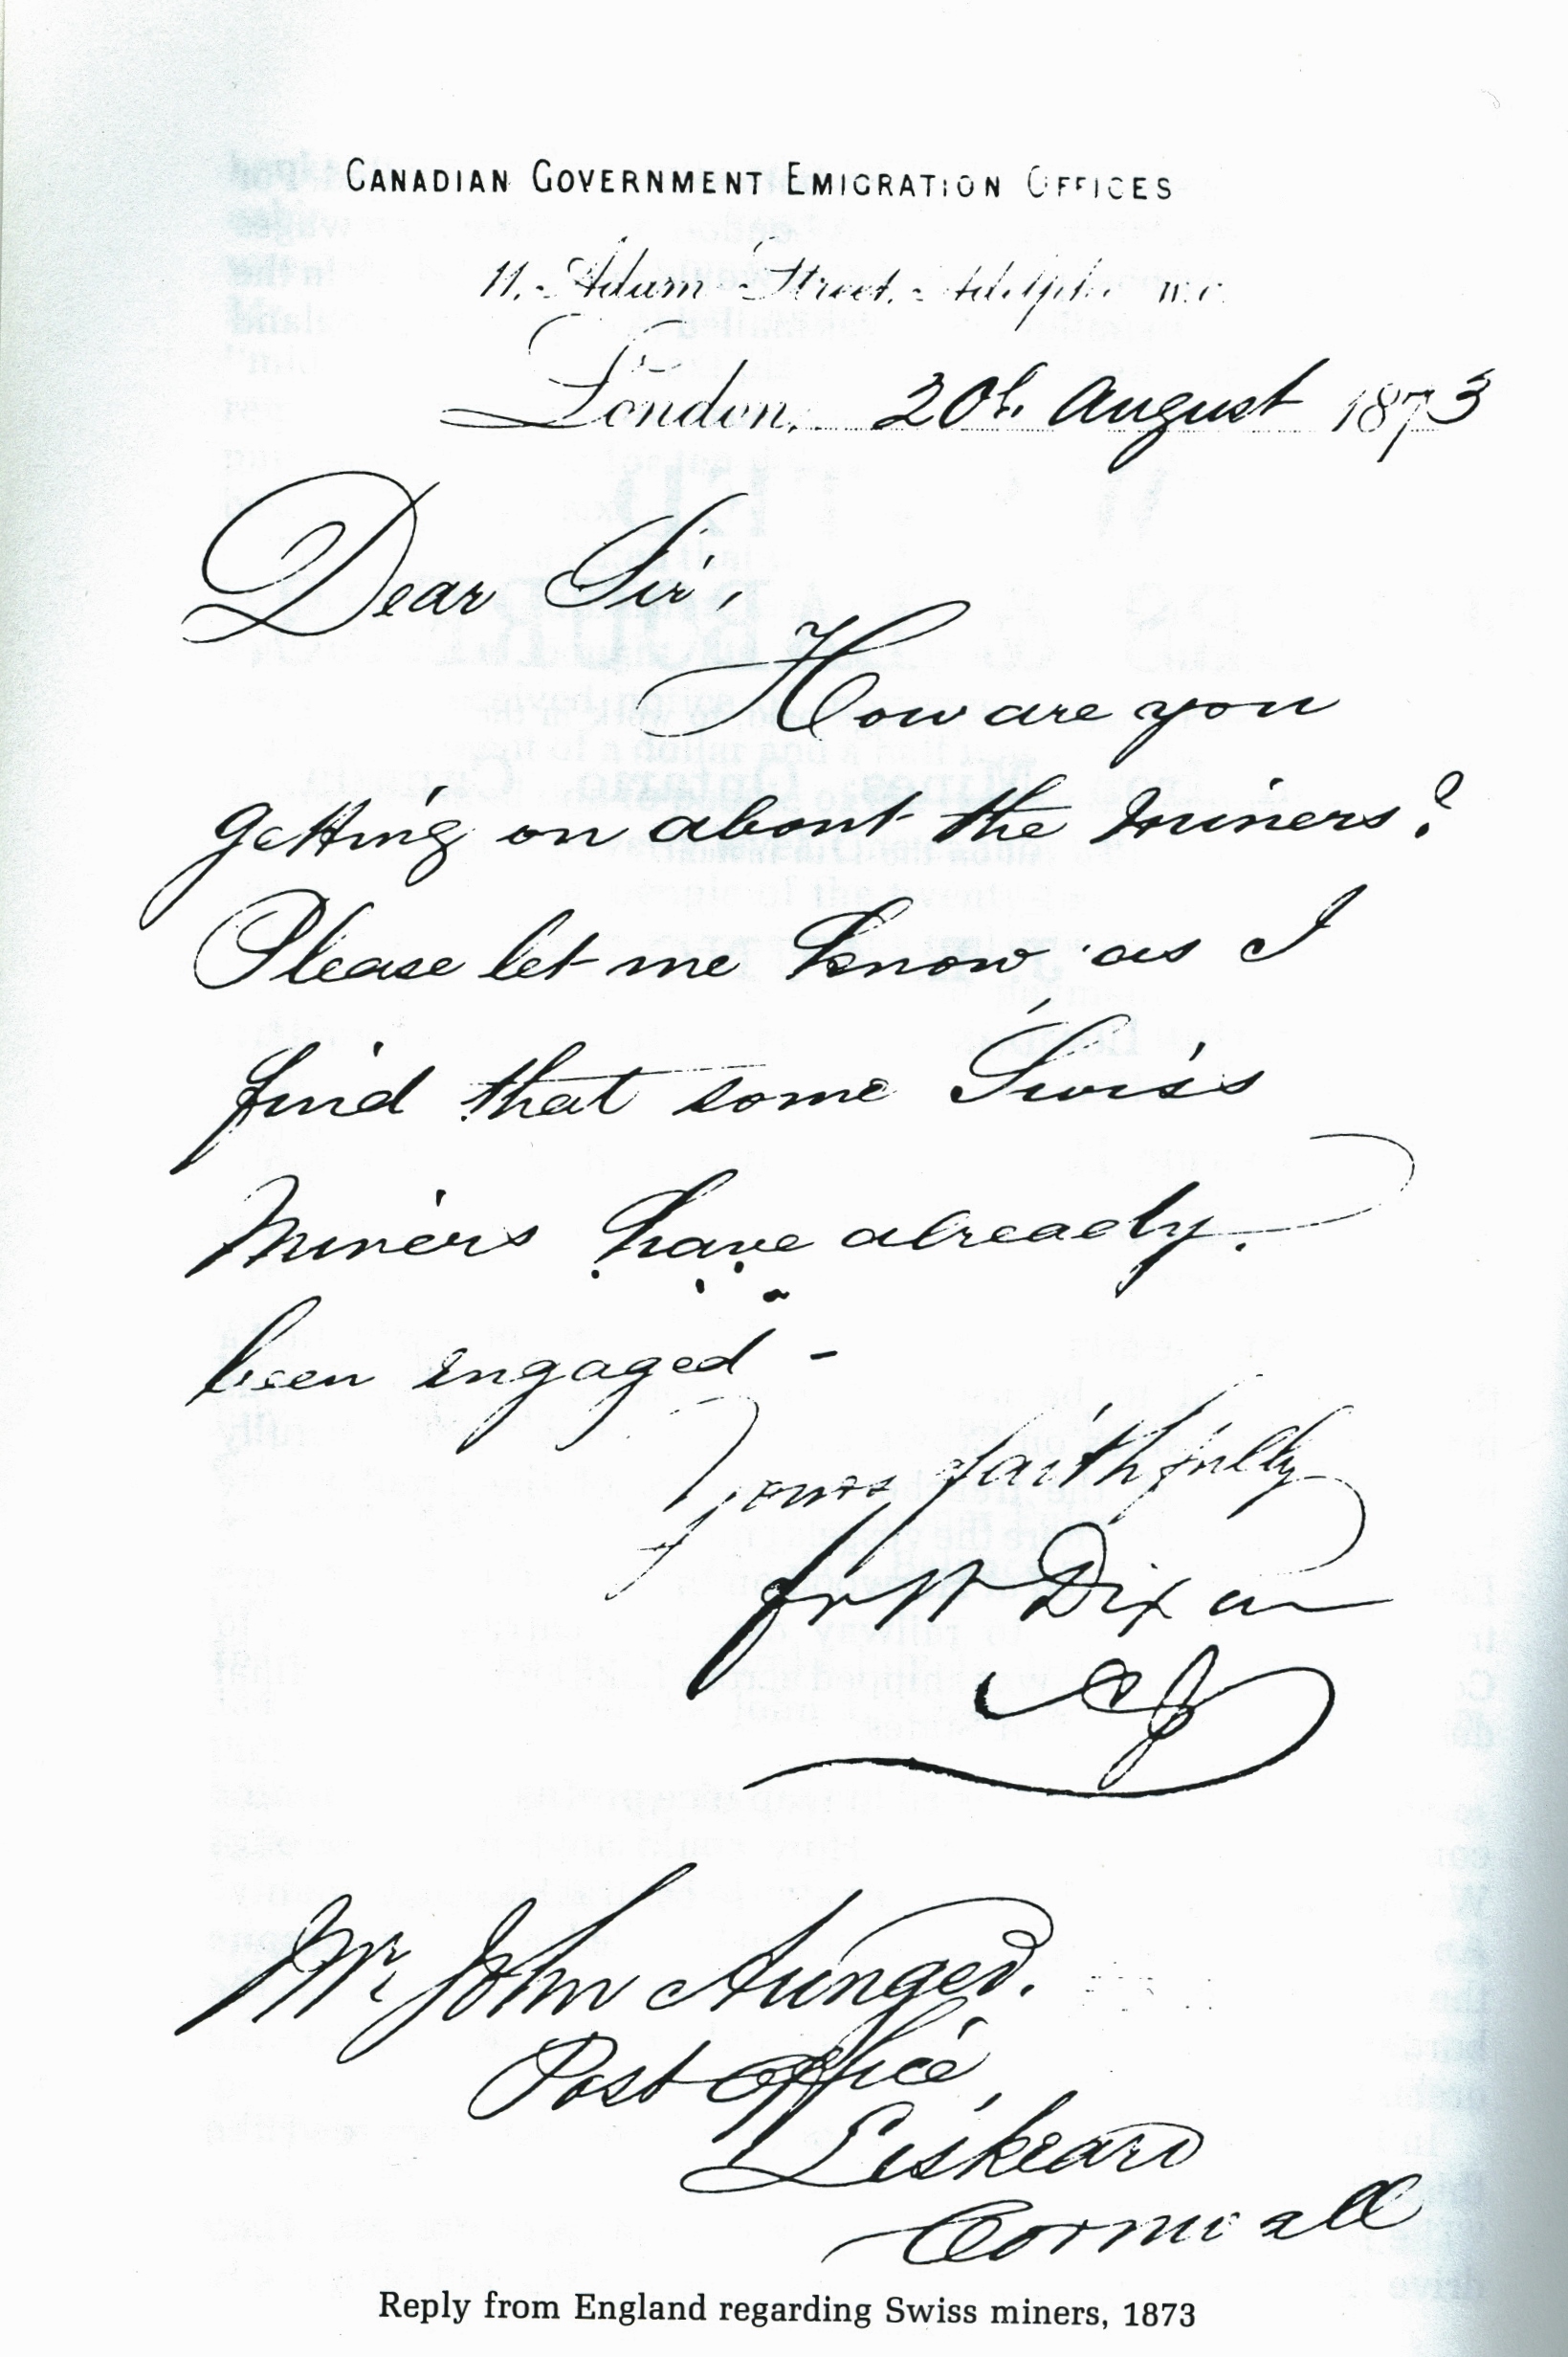 CANADIAN GOVERNMENT EMIGRATION OFFICES
11, Adam Street, Adelphi W.C.
London, 20th August 1873
Dear Sir,
How are you
getting on about the Miners?
Please let me know as I
find that some Swiss
Miners have already
been engaged -
Yours faithfully
for W Dixon
Mr John
Post Office,
Liskeard
Cornwall
Reply from England regarding Swiss miners, 1873